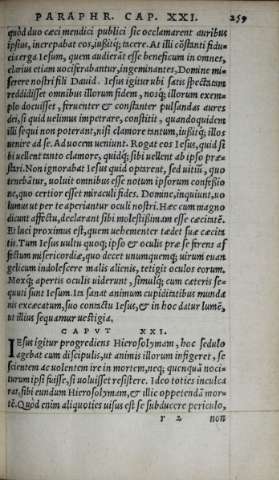 PARAPHR. CAP. XXI. 259
quòd duo cæci mendici publici sic occlamarent auribus
ipsius, increpabat eos, iussitq́; tacere. At illi cõstanti fidu-
cia erga Iesum, quem audierãt esse beneficum in omnes,
clarius etiam uociferabantur, ingeminantes, Domine mi-
serere nostri fili Dauid. Iesus igitur ubi satis spectatum
reddidisset omnibus illorum fidem, nosq́; illorum exem-
plo docuisset, feruenter & constanter pulsandas aures
dei, si quid uelimus impetrare, constitit, quandoquidem
illi sequi non poterant, nisi clamore tantum, iussitq́; illos
uenire ad se. Aduocem ueniunt. Rogat eos Iesus, quid si
bi uellent tanto clamore, quidq́; sibi uellent ab ipso præ-
stari. Non ignorabat Iesus quid optarent, sed uitiũ, quo
tenebãtur, uoluit omnibus esse notum ipsorum confessio
ne, quo certior esset miraculi fides. Domine, inquiunt, uo
lumus ut per te aperiantur oculi nostri. Hæc cum magno
dicunt affectu, declarant sibi molestißimam esse cæcitatẽ.
Et luci proximus est, quem uehementer tædet suæ cæcita
tis. Tum Iesus uultu quoq́; ipso & oculis præ se ferens af
fectum misericordiæ, quo docet unumquemq́; uirum euan
gelicum indolescere malis alienis, tetigit oculos eorum.
Moxq́; apertis oculis uiderunt, simulq́; cum cæteris se-
quuti sunt Iesum. Ita sanat animum cupiditatibus munda
nis excæcatum, suo contactu Iesus, & in hoc datur lumẽ,
ut illius sequamur uestigia.
CAPVT XXI.
IEsus igitur progrediens Hierosolymam, hoc sedulo
agebat cum discipulis, ut animis illorum infigeret, se
scientem ac uolentem ire in mortem, neq́; quenquã noci-
turum ipsi fuisse, si uoluisset resistere. Ideo toties inculca
rat, sibi eundum Hierosolymam, & illic oppetendã mor-
tẽ. Quòd enim aliquoties uisus est se subducere periculo,
r 2 non